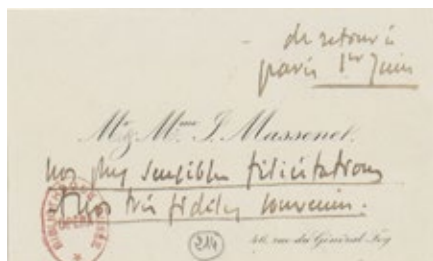 - de retour à
paris 1er Juin
Mr & Mme J. Massenet.
nos plus sensibles félicitations
& nos très fidèles souvenirs.
214
46, rue du Général Foy